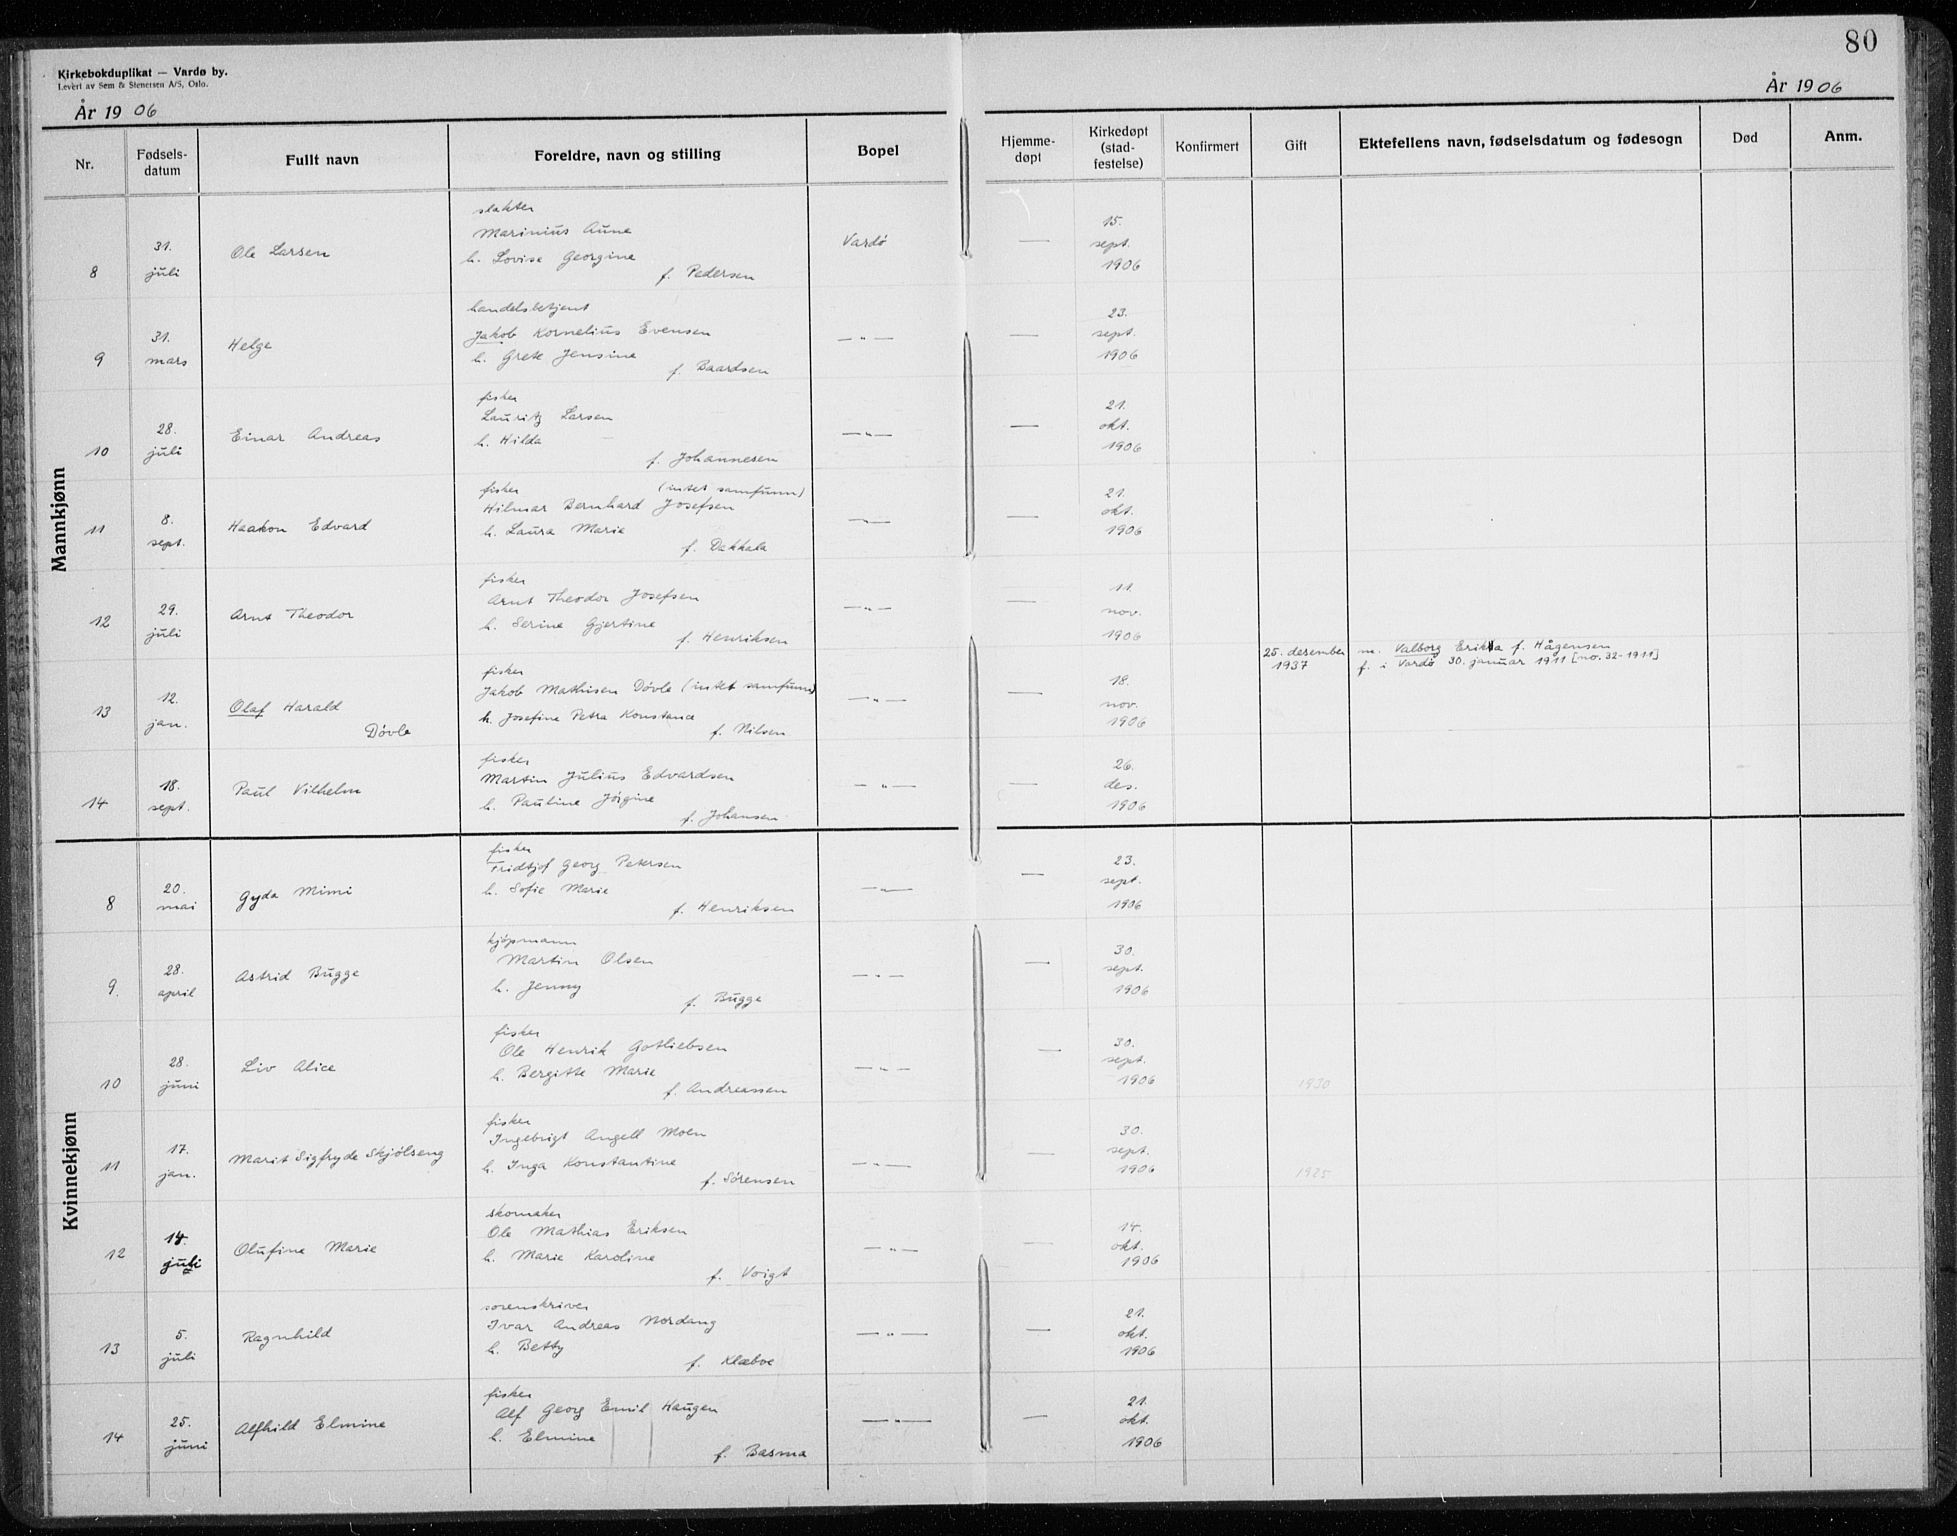 80
Kirkebokduplikat — Vardø by.
Levert av Sem & Stenersen A/S, Oslo.
År 1906
År 1906
Nr. Fødsels-datum Fullt navn Foreldre, navn og stilling Bopel Hjemme-døpt Kirkedøpt (stad-festelse) Konfirmert Gift Ektefellens navn, fødselsdatum og fødesogn Død Anm.
Mannkjønn
slakter
8 31. juli Ole Larsen Marinius Aune Vardø — 15. sept. 1906
h. Lovise Georgine
f. Pedersen
handelsbetjent
9 31. mars Helge Jakob Kornelius Evensen —"— — 23. sept. 1906
h. Grete Jensine
f. Baardsen
fisker
10 28. juli Einar Andreas Lauritz Larsen —"— — 21. okt. 1906
h. Hilda
f. Johannesen
fisker (intet samfunn)
11 8. sept. Haakon Edvard Hilmar Bernhard Josefsen —"— — 21. okt. 1906
h. Laura Marie
f. Dakkala
fisker
12 29. juli Arnt Theodor Arnt Theodor Josefsen —"— — 11. nov. 1906
h. Serine Gjertine
f. Henriksen
fisker
13 12. jan. Olaf Harald Døvle Jakob Mathisen Døvle (intet samfunn) —"— — 18. nov. 1906 25. desember 1937 m. Valborg Erika f. Hågensen
f. i Vardø 30. januar 1911 [no. 32-1911]
h. Josefine Petra Konstance
f. Nilsen
fisker
14 18. sept. Paul Vilhelm Martin Julius Edvardsen —"— — 26. des. 1906
h. Pauline Jörgine
f. Johansen
Kvinnekjønn
fisker
8 20. mai Gyda Mimi Fridtjof Georg Petersen —"— — 23. sept. 1906
h. Sofie Marie
f. Henriksen
kjøpmann
9. 28. april Astrid Bugge Martin Olsen —"— — 30. sept. 1906
h. Jenny
f. Bugge
fisker
10 28. juni Liv Alice Ole Henrik Gotliebsen —"— — 30. sept. 1906 1930
h. Bergitte Marie
f. Andreassen
fisker
11 17. jan. Marit Sigfryde Skjölseng Ingebrigt Angell Moen —"— — 30. sept. 1906 1925
h. Inga Konstantine
f. Sörensen
skomaker
12 14. juli Olufine Marie Ole Mathias Eriksen —"— — 14. okt. 1906
h. Marie Karoline
f. Voigt
sorenskriver
13 5. juli Ragnhild Ivar Andreas Nordang —"— — 21. okt. 1906
h. Betty
f. Klæboe
fisker
14 25. juni Alfhild Elmine Alf Georg Emil Haugen —"— — 21. okt. 1906
h. Elmine
f. Basma